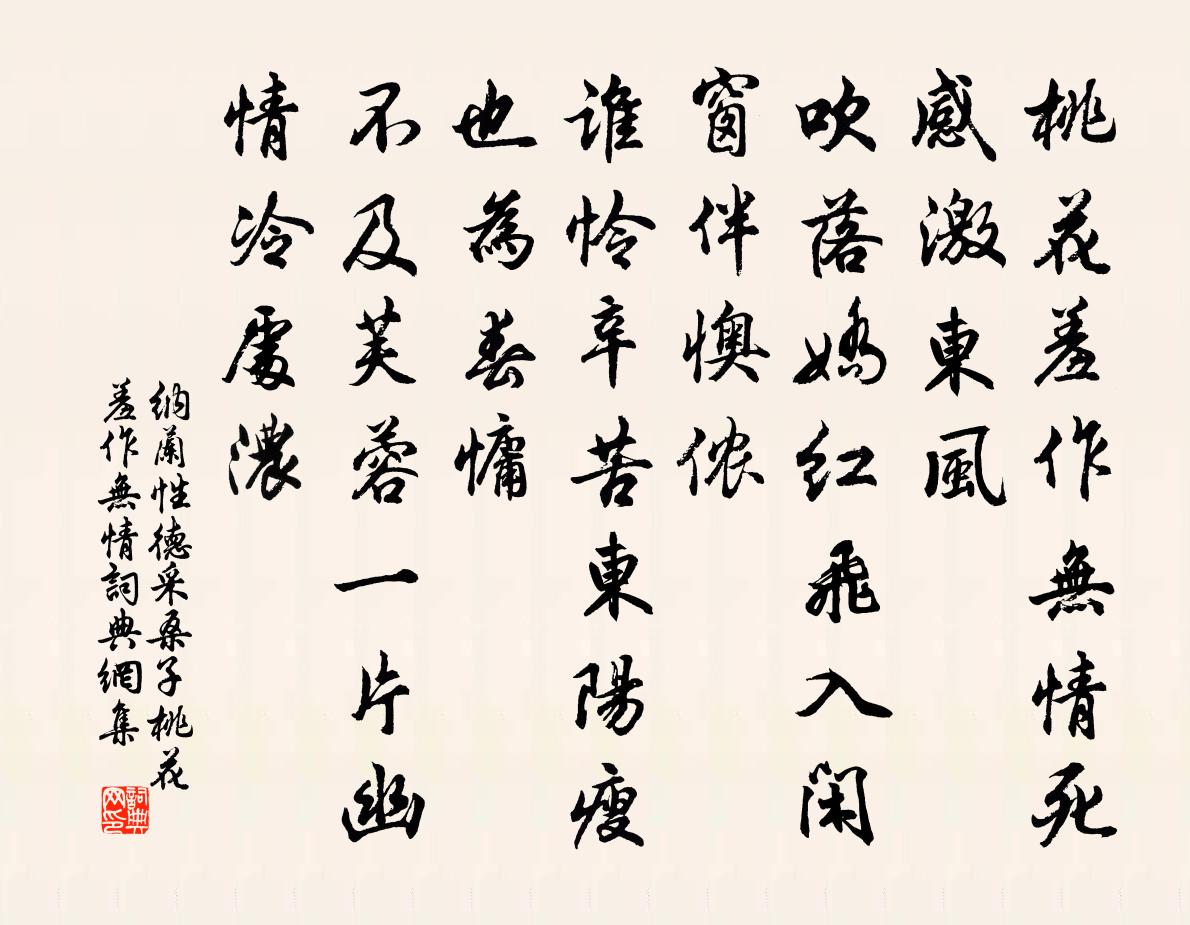 桃花羞作無情死
感激東風
吹落嬌紅飛入闲
窗伴懊侬
誰怜辛苦東陽瘦
也為春慵
不及芙蓉一片幽
情冷處濃
納蘭性德采桑子桃花
羞作無情詞典網集
詞典
网印